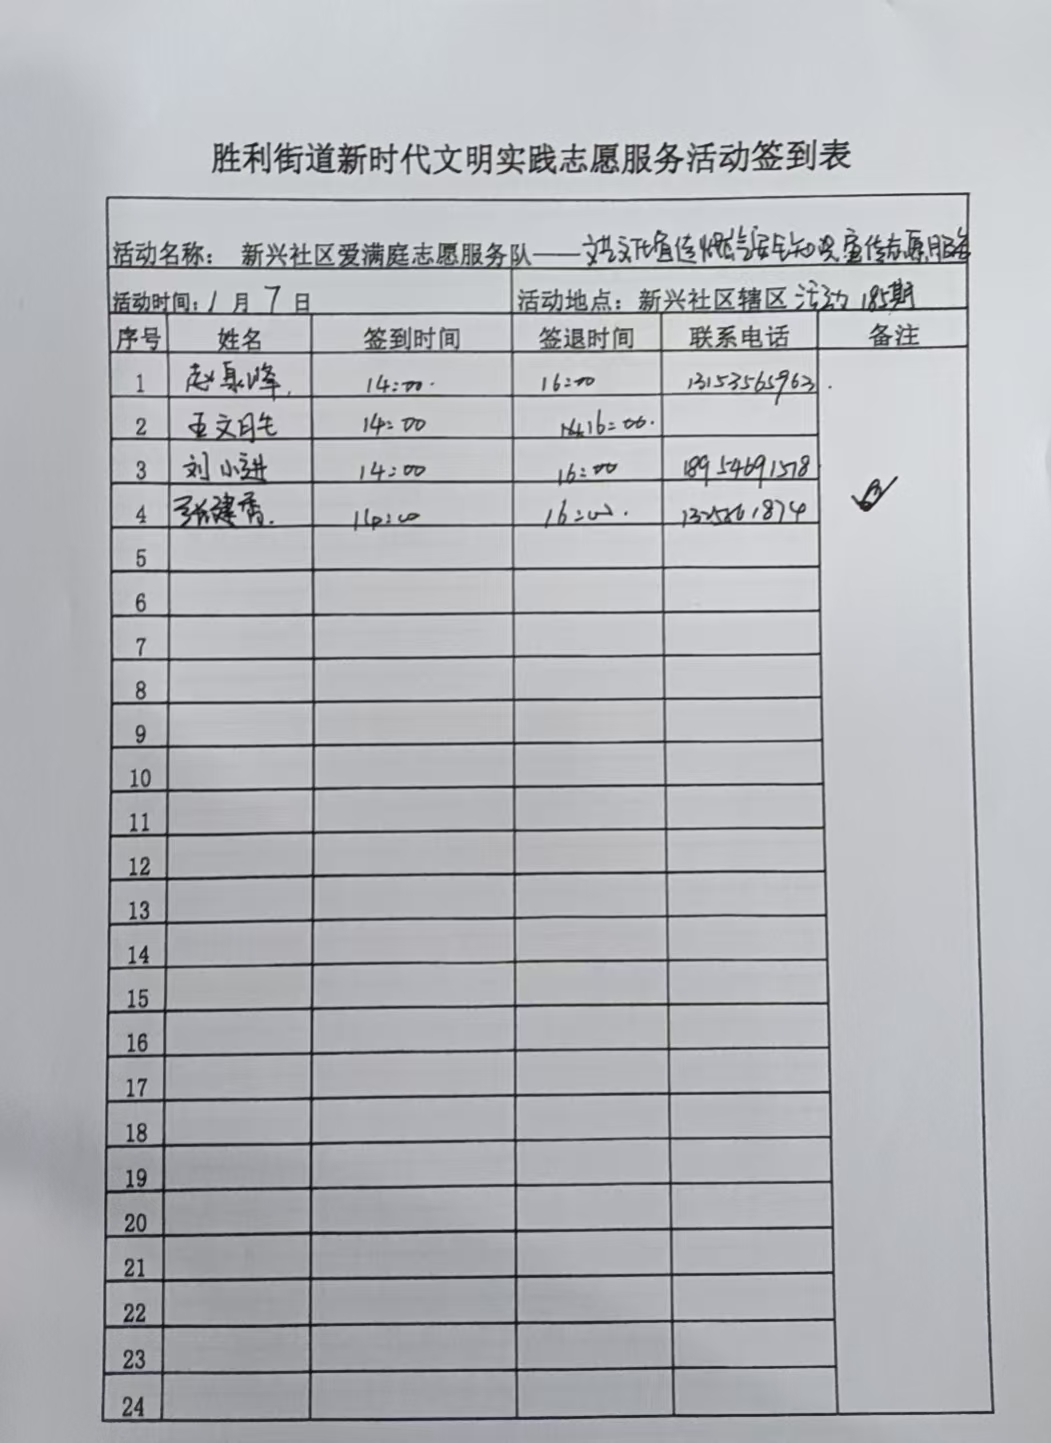 胜利街道新时代文明实践志愿服务活动签到表
活动名称： 新兴社区爱满庭志愿服务队——文艺文化宣传燃气安全知识宣传志愿服务
活动时间：1月7日 活动地点：新兴社区辖区 活动 185期
序号 姓名 签到时间 签退时间 联系电话 备注
1 赵泉峰 14:00 16:00 13153565963
2 王文 14:00 16:00
3 刘小进 14:00 16:00 18954691578
4 张建香 14:00 16:00
5
6
7
8
9
10
11
12
13
14
15
16
17
18
19
20
21
22
23
24